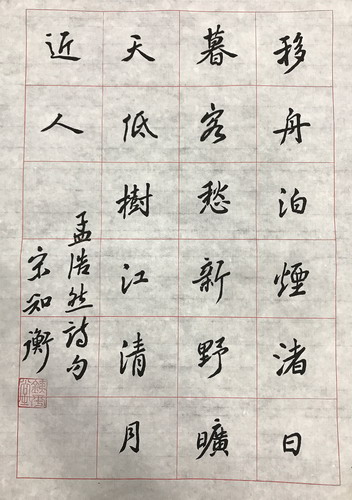 移舟泊煙渚日
暮客愁新野曠
天低樹江清月
近人
孟浩然詩句
宋知衡